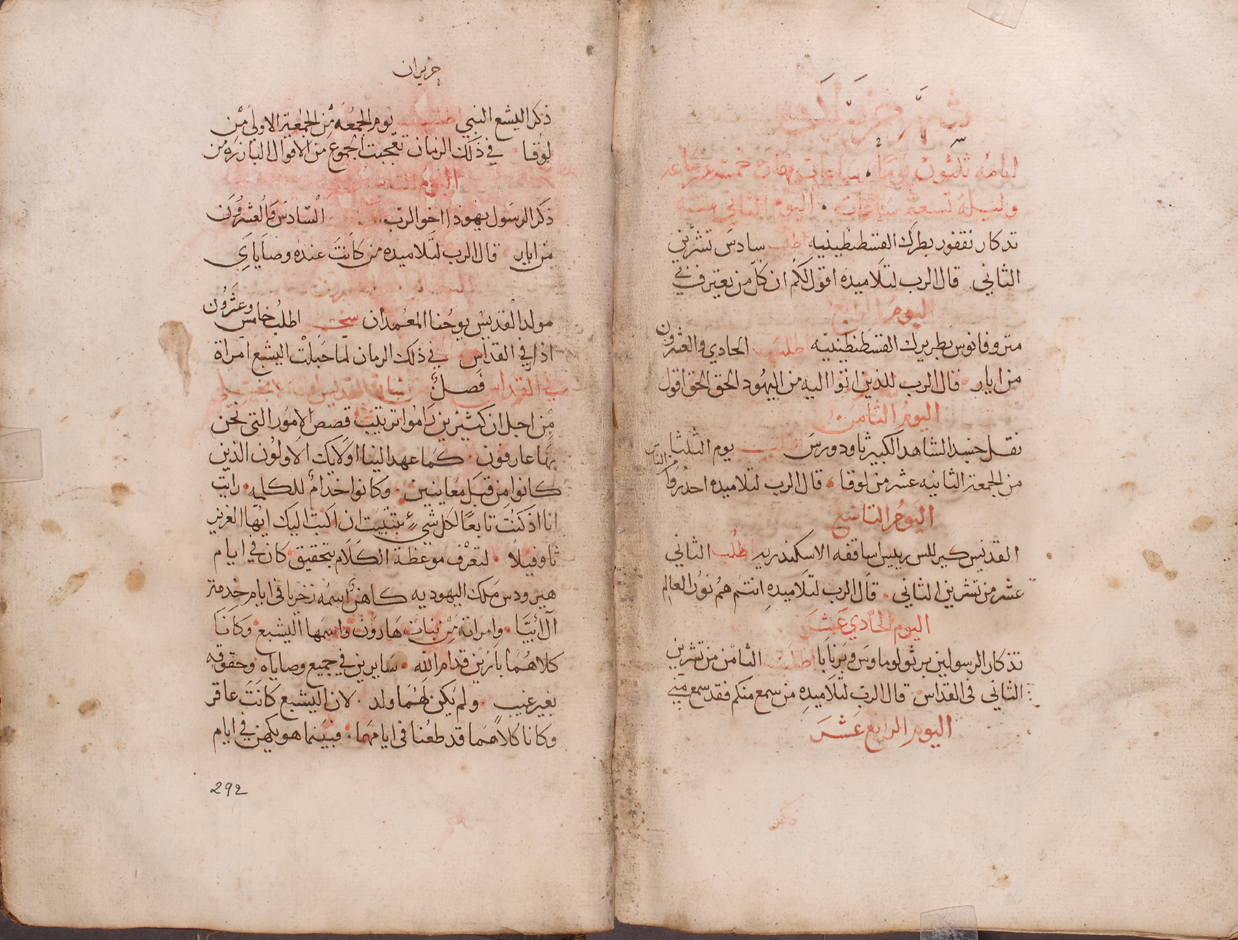 شهر حزيران
ايامه ثلثون يوما ساعات نهاره خمسة عشر ساعه
وليله تسعة ساعات اليوم الثاني منه
تدكار نقفور بطرك القسطنطينيه اطلب سادس تشرين
الثاني قال الرب لتلاميده اقول لكم ان كل من يعترف بي
اليوم الرابع
متروفانوس بطريرك القسطنطينيه اطلب الحادي والعشرون
من ايار قال الرب للذين اتوا اليه من اليهود الحق الحق اقول
اليوم الثامن
نقل جسد الشاهد الكبير ثاودورس يوم الثلثا
من الجمعة الثانيه عشر من لوقا قال الرب لتلاميده احدروا
اليوم التاسع
القديس كيرللس رييس اساقفه الاسكندريه اطلب الثاني
عشر من تشرين الثاني قال الرب لتلاميده انتم هم نور العالم
اليوم الحادي عشر
تذكار الرسولين برثولوماوس وبرنابا اطلب الثامن من تشرين
الثاني في القداس قال الرب لتلاميده من سمع منكم فقد سمع مني
اليوم الرابع عشر
حزيران
ذكر اليشع النبي اطلب يوم الجمعه من الجمعة الاولى من
لوقا في ذلك الزمان تعجبت الجموع من الاقوال البارزه من
ذكر الرسول يهوذا اخو الرب السادس والعشرون
من ايار قال الرب لتلاميده من كانت عنده وصاياي
مولد القديس يوحنا المعمدان سحر اطلب خامس وعشرون
اذار في القداس في ذلك الزمان لما حبلت اليشع امراة
في القداس فصل من بشارة القديس لوقا
من اجل ان كثيرين راموا ترتيب قصص الامور التي نحن
بها عارفون كما عهد الينا اولايك الاولون الذين
كانوا من قبل معاينين وكانوا خداما للكلمه رايت
انا اذ كنت تابعا لكل شيء بتثبيت ان اكتب اليك ايها العزيز
ثاوفيلا لتعرف موعظة الكلام بتحقيق كان في ايام
هيرودس ملك اليهوديه كاهن اسمه زخريا في ايام خدمة
آل ابيا وامراته من بنات هارون واسمها اليشبع وكانا
كلاهما بارين قدام الله سايرين في جميع وصاياه وحقوقه
بغير عيب ولم يكن لهما ولد لان اليشبع كانت عاقر
وكانا كلاهما قد طعنا في ايامهما فبينما هو يكهن في ايام
292